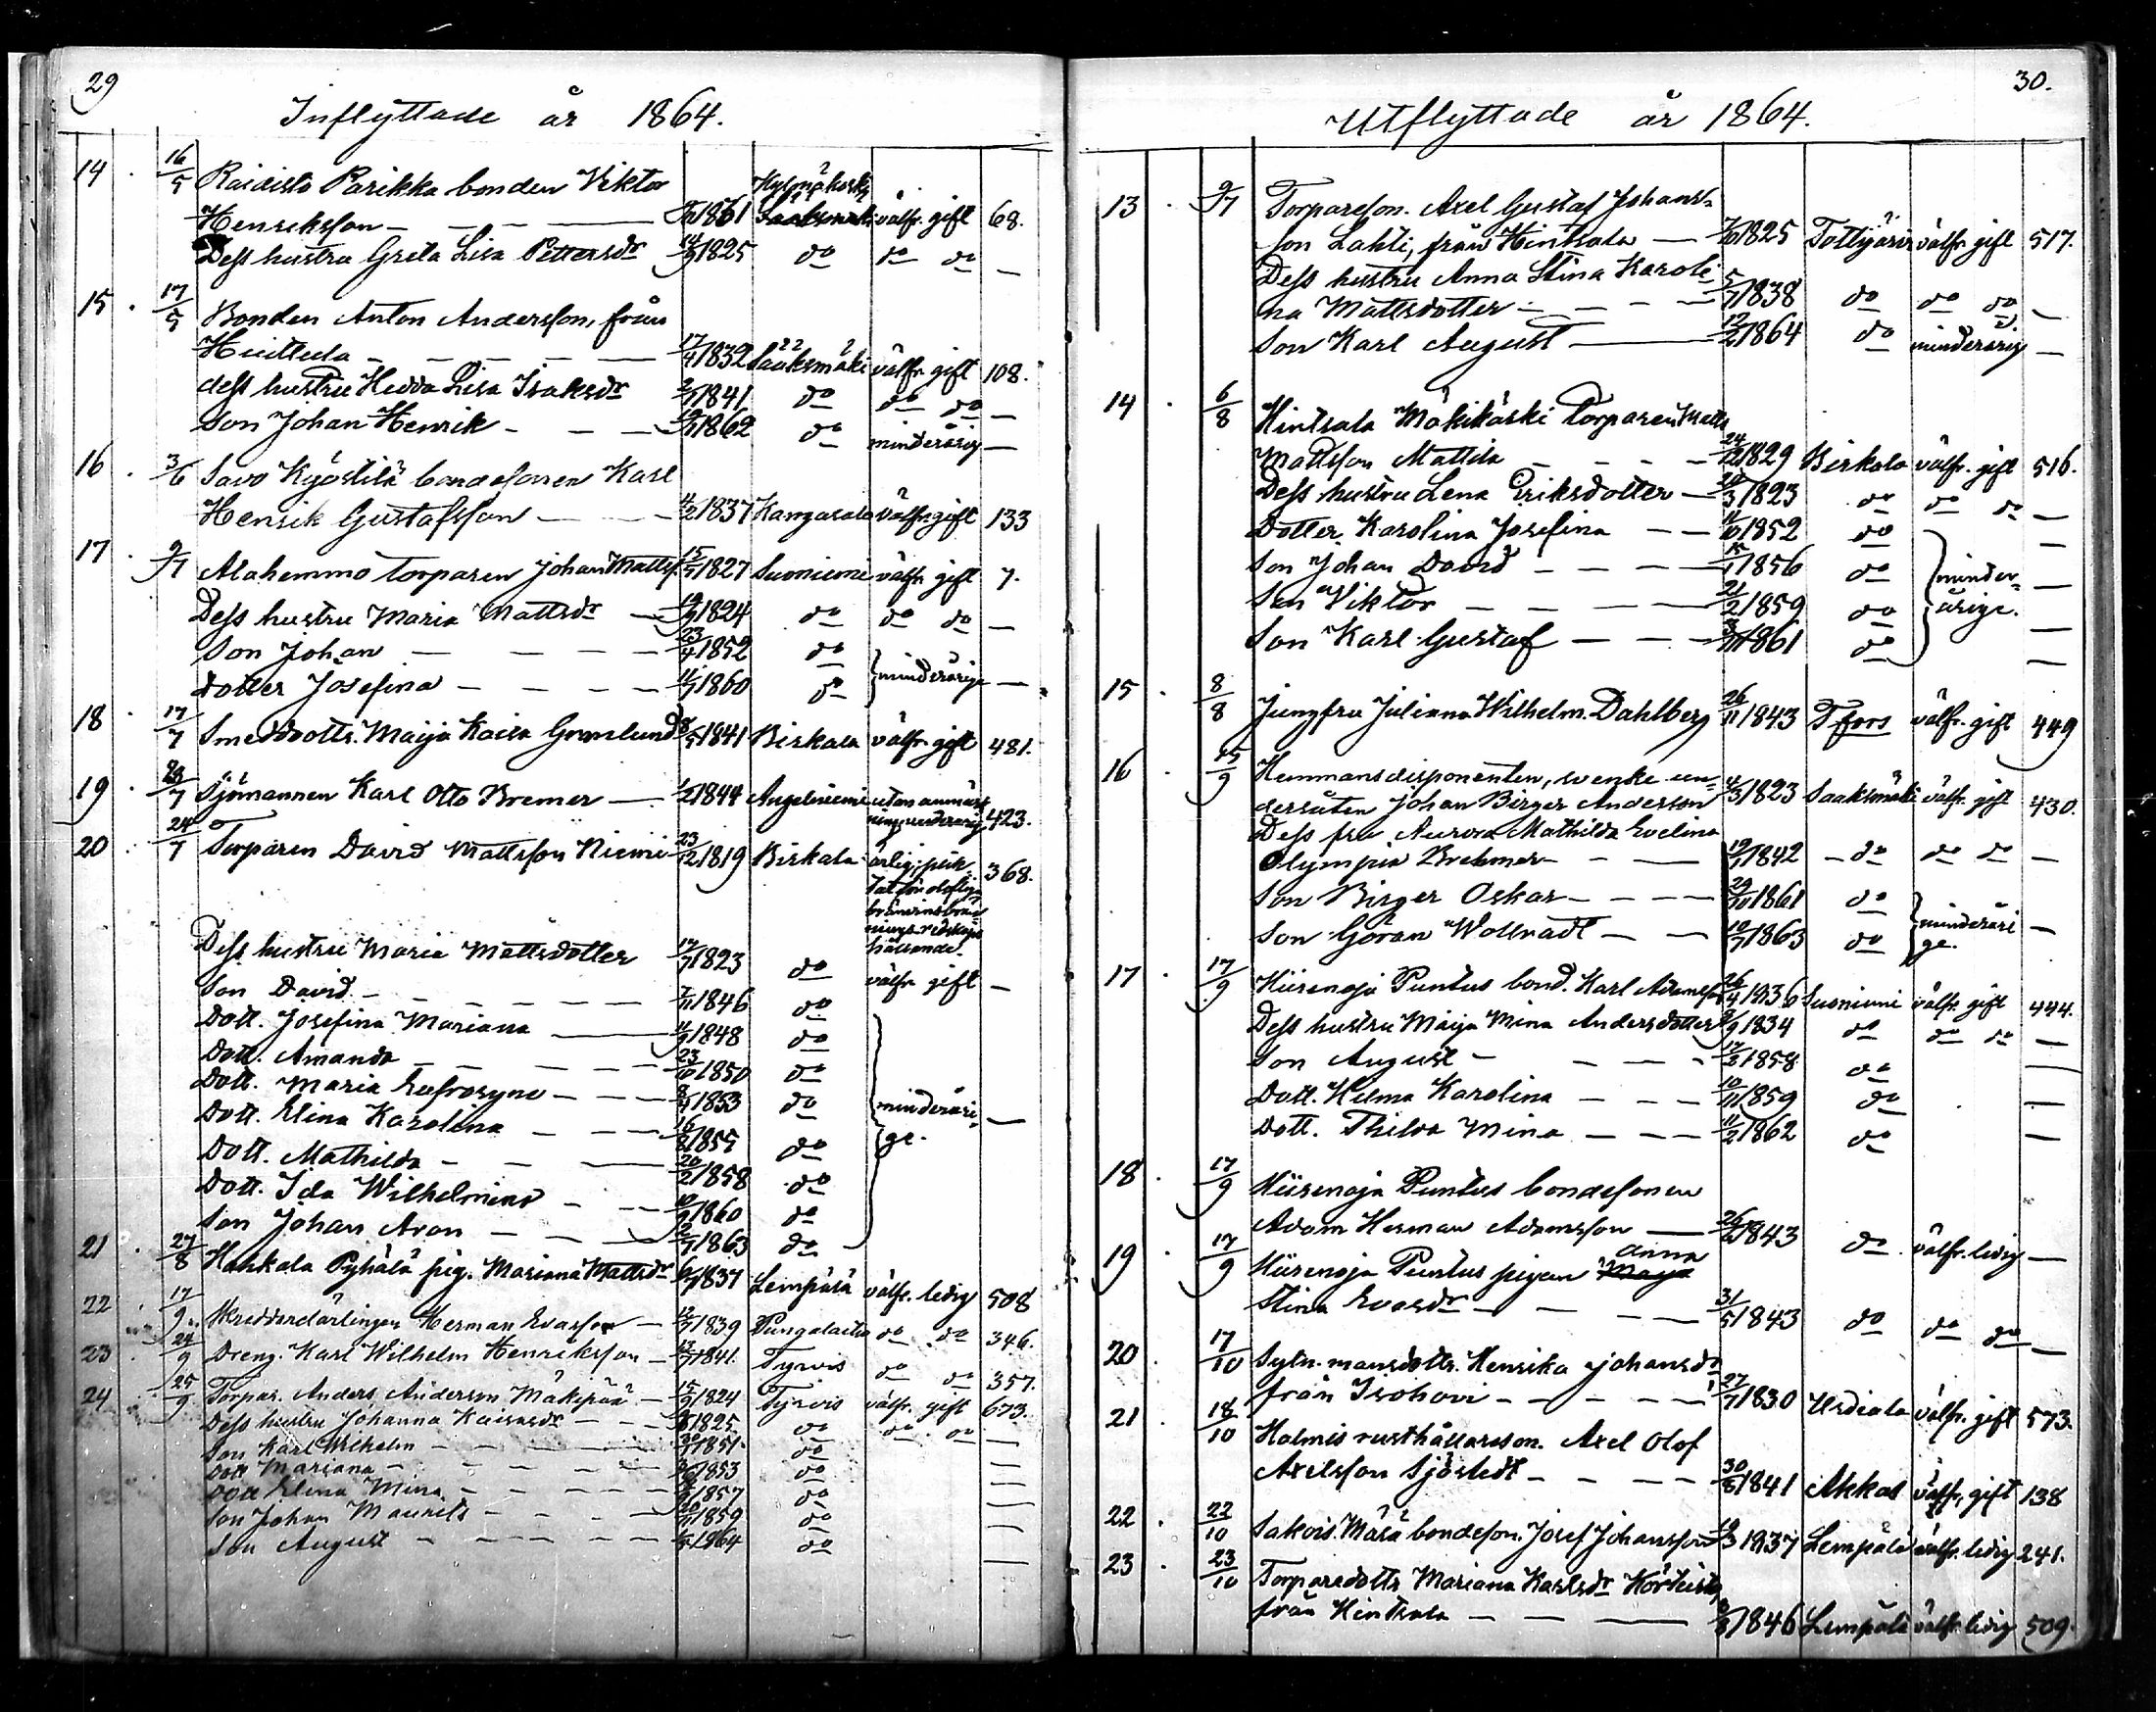 29
Inflyttade år 1864.
14 . 16/5 Raidisto Parikka bonden Viktor Kylmäkoski
Henriksson - - - 1861 Sääksmäki välfr. gift 68.
Dess hustru Greta Lisa Pettersdr 14/9 1825 do do do —
15 . 17/5 Bonden Anton Andersson, från
Huittula - - - 17/4 1832 Sääksmäki välfr. gift 108.
dess hustru Hedda Lisa Isaksdr 1841 do do do —
Son Johan Henrik - - - 1862 do minderårig —
16 . 3/6 Savo Kyöstilä bondesonen Karl
Henrik Gustafsson - - 4/2 1837 Kangasala välfr. gift 133
17 . 9/7 Alahemmo torparen Johan Mattss. 15/5 1827 Suoniemi välfr. gift 7.
Dess hustru Maria Mattsdr - 1824 do do do —
Son Johan - - - - 23/4 1852 do
dotter Josefina - - - - 1860 do } minderårige —
18 . 17/7 Smeddottr. Maija Kaisa Grönlund 1841 Birkala välfr. gift 481.
19 . 23/7 Sjömannen Karl Otto Bremer — 1844 Angelniemi utan anmärk
ning minderårig 423.
20 . 24/7 Torparen David Mattsson Niemi 23/12 1819 Birkala ärlig, plik
tat för oloflig 368.
bränvinsbrän
nings redskaps
Dess hustru Maria Mattsdotter 17/7 1823 do hållande.
välfr. gift —
Son David - - - - - 7/11 1846 do
Dott. Josefina Mariana — 1848 do
Dott. Amanda - - - - 23/10 1850 do
Dott. Maria Eufrosyne - - - 1853 do } minderåri-
Dott. Elina Karolina - - - 1855 do ge. —
Dott. Mathilda - - - 20/2 1858 do
Dott. Ida Wilhelmina - - 1860 do
Son Johan Aron - - - 1863 do
21 . 27/8 Hahkala Pyhälä pig. Mariana Mattsdr 1837 Lempälä välfr. ledig 508
22 . 17/9 Skreddarelärlingen Herman Evasson — 1839 Pungalaitio do do 346.
23 24/9 Dreng. Karl Wilhelm Henriksson — 1841. Tyrvis do do 357.
24 . 25/9 Torpar. Anders Anderson Mäkipää — 15/9 1824 Tyrvis välfr. gift 673.
Dess hustru Johanna Kaisasdr - - 1825 do do do —
Son Karl Wilhelm - - - - 1851 do —
Dott Mariana - - - - - 1853 do —
Dott Elina Mina - - - - 1857 do —
Son Johan Maurits - - - - 1859 do —
Son August - - - - - 1864 do —
30.
Utflyttade år 1864.
13 . 9/7 Torpareson. Axel Gustaf Johans-
son Lahti, från Hintsala — 1825 Tottijärvi välfr. gift 517.
Dess hustru Anna Stina Karoli-
na Mattsdotter - - - 5/7 1838 do do do —
Son Karl August — 12/2 1864 do minderårig —
14 . 6/8 Hintsala Mäkikäski Torparen Matts
Mattsson Mattila - - - 24/12 1829 Birkala välfr. gift 516.
Dess hustru Lena Eriksdotter — 1823 do do do —
Dotter Karolina Josefina - - 1852 do —
Son Johan David - - - - 1856 do } minder- —
Son Viktor - - - - 21/2 1859 do årige. —
Son Karl Gustaf - - - 1861 do —
15 . 8/8 Jungfru Juliana Wilhelm. Dahlberg 26/11 1843 Tfors välfr. gift 449
16 . 15/9 Hemmansdisponenten, svenske un-
dersåten Johan Birger Anderson 4/3 1823 Sääksmäki välfr. gift 430.
Dess fru Aurora Mathilda Evelina
Olympia Brehmer - - - 1842 - do do do —
Son Birger Oskar - - - 1861 do } minderåri
Son Göran Wollradt - - 1863 do ge. —
17 . 17/9 Hiirenoja Puntus bond. Karl Adamsson 26/4 1836 Suoniemi välfr. gift 444.
Dess hustru Maija Mina Andersdotter 1834 do do do —
Son August - - - - 1858 do —
Dott. Hilma Karolina - - - 10/11 1859 do —
Dott. Thilda Mina - - - 11/2 1862 do —
18 . 17/9 Hiirenoja Puntus bondesonen
Adam Herman Adamsson — 1843 do välfr. ledig —
19 . 17/9 Hiirenoja Puntus pigan Maja Anna
Stina Evasdr - - - - 31/5 1843 do do do —
20 . 17/10 Sytn. mansdottr. Henrika Johansdr
från Isohovi - - - - 27/7 1830 Urdiala välfr. gift 573.
21 . 18/10 Halmis rusthållareson. Axel Olof
Axelsson Sjöstedt - - - - 30/5 1841 Akkas välfr. gift 138
22 . 22/10 Sakois Mäsä bondeson. Josef Johansson 1837 Lempälä välfr. ledig 241.
23 . 23/10 Torparedottr Mariana Karlsdr
från Hintsala - - — 1846 Lempälä välfr. ledig 509.